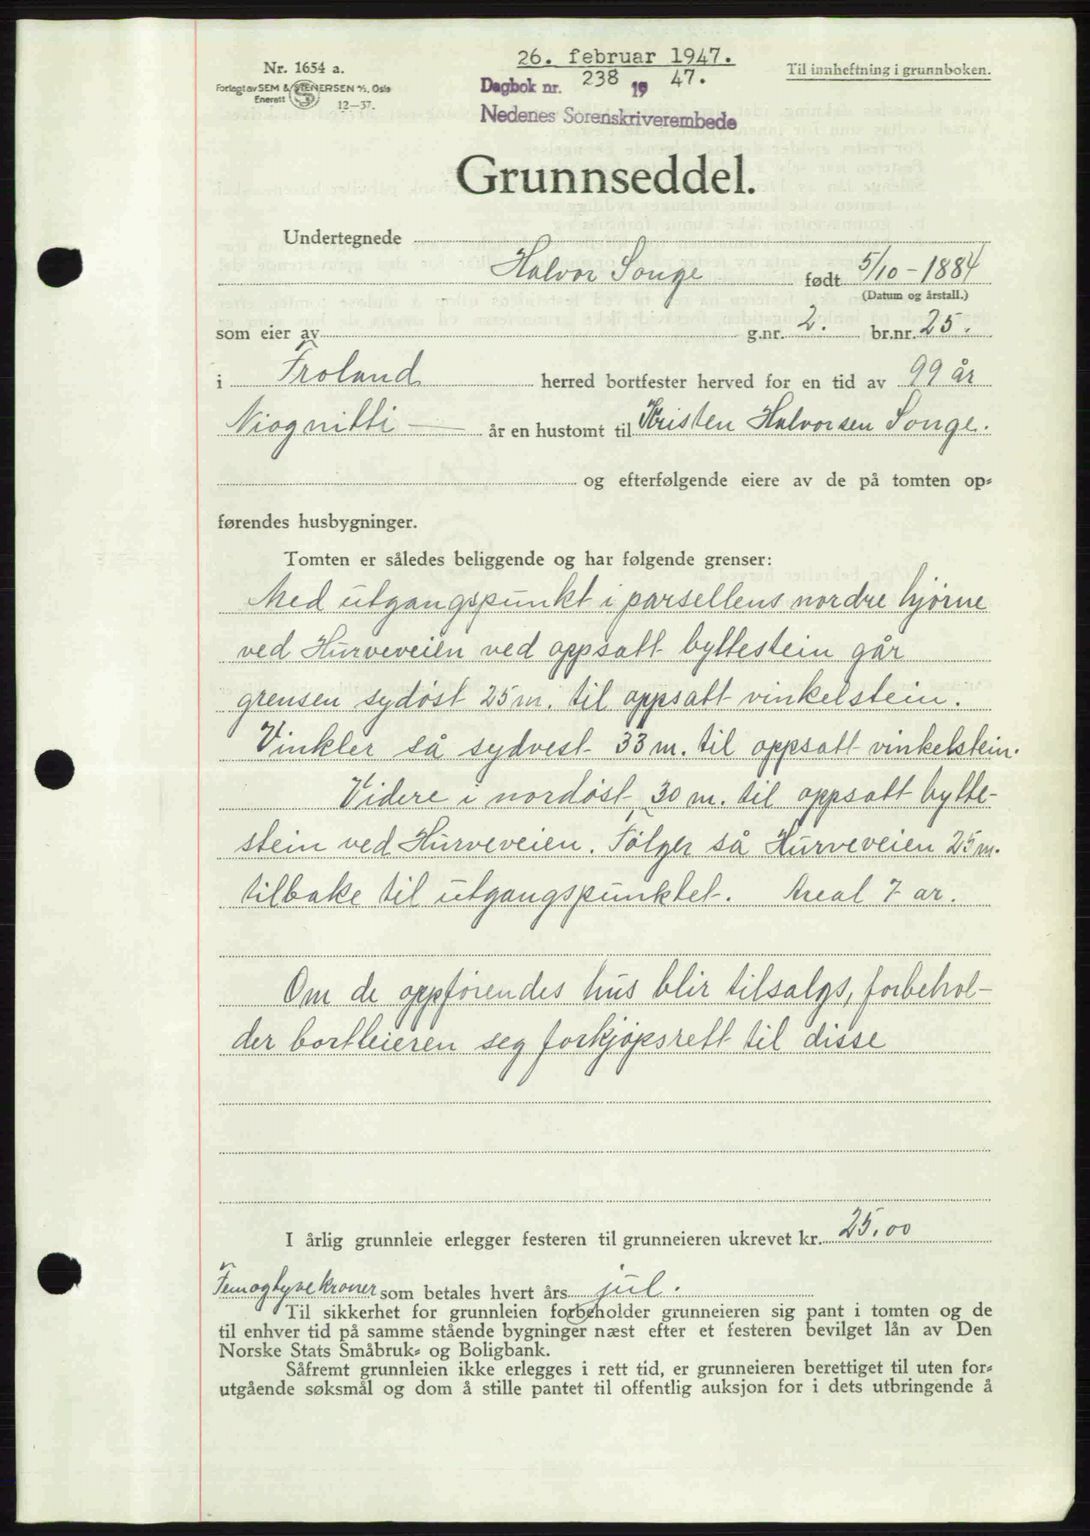 26. februar 1947.
Nr. 1654 a.
Til innheftning i grunnboken.
Forlagt av SEM & STENERSEN A/S, Oslo
Enerett
12-37.
Dagbok nr. 238 1947.
Nedenes Sorenskriverembede
Grunnseddel.
Undertegnede
Halvor Songe født 5/10-1884
(Datum og årstall.)
som eier av g.nr. 2. br.nr. 25.
i Froland herred bortfester herved for en tid av 99 år
Niognitti år en hustomt til Kristen Halvorsen Songe.
og efterfølgende eiere av de på tomten op-
førendes husbygninger.
Tomten er således beliggende og har følgende grenser:
Med utgangspunkt i parsellens nordre hjørne
ved Hurveveien ved oppsatt byttestein går
grensen sydøst 25 m. til oppsatt vinkelstein.
Vinkler så sydvest 33 m. til oppsatt vinkelstein.
Videre i nordøst 30 m. til oppsatt bytte-
stein ved Hurveveien. Følger så Hurveveien 25 m.
tilbake til utgangspunktet. Areal 7 ar.
Om de oppførendes hus blir tilsalgs, forbehol-
der bortleieren seg forkjøpsrett til disse
I årlig grunnleie erlegger festeren til grunneieren ukrevet kr. 25.00
Femogtyve kroner som betales hvert års jul.
Til sikkerhet for grunnleien forbeholder grunneieren sig pant i tomten og de
til enhver tid på samme stående bygninger næst efter et festeren bevilget lån av Den
Norske Stats Småbruk- og Boligbank.
Såfremt grunnleien ikke erlegges i rett tid, er grunneieren berettiget til uten for-
utgående søksmål og dom å stille pantet til offentlig auksjon for i dets utbringende å